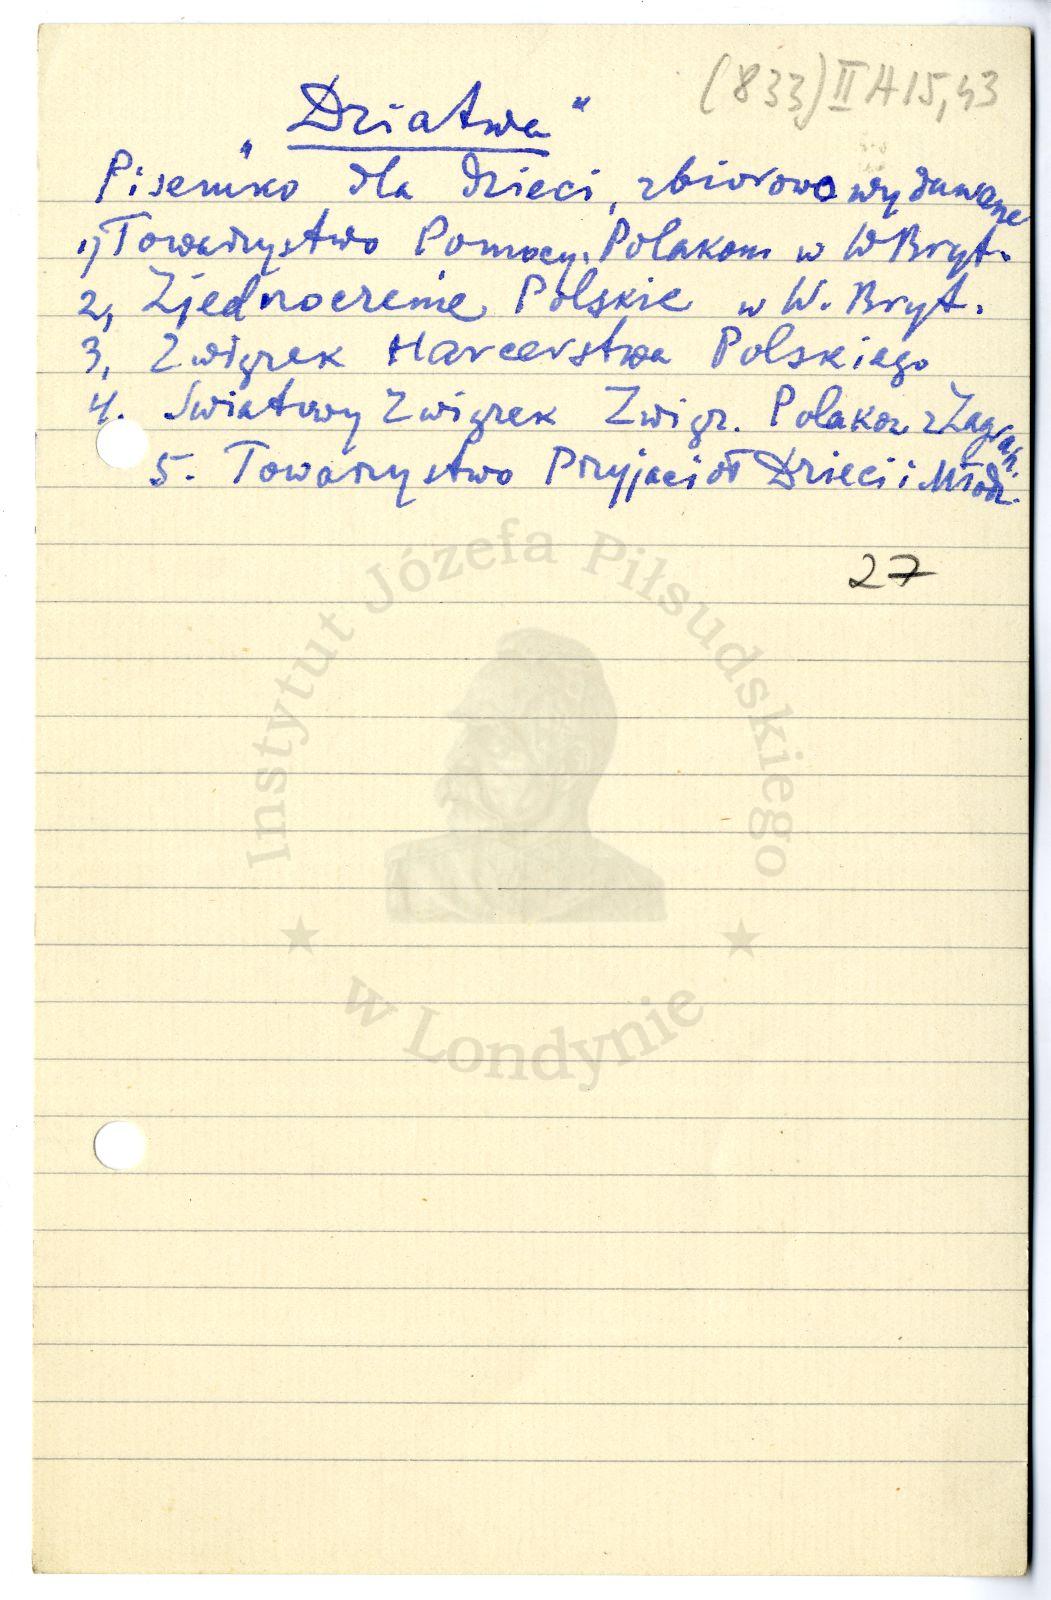 (833) II A 15, 43
„Dziatwa”
Pisemko dla dzieci, zbiorowo wydawane
1) Towarzystwo Pomocy Polakom w W Bryt.
2, Zjednoczenie Polskie w W. Bryt.
3, Związek Harcerstwa Polskiego
4. Światowy Związek Związ. Polaków z Zagran.
5. Towarzystwo Przyjaciół Dzieci i Młodz.
27
Instytut Józefa Piłsudskiego
w Londynie